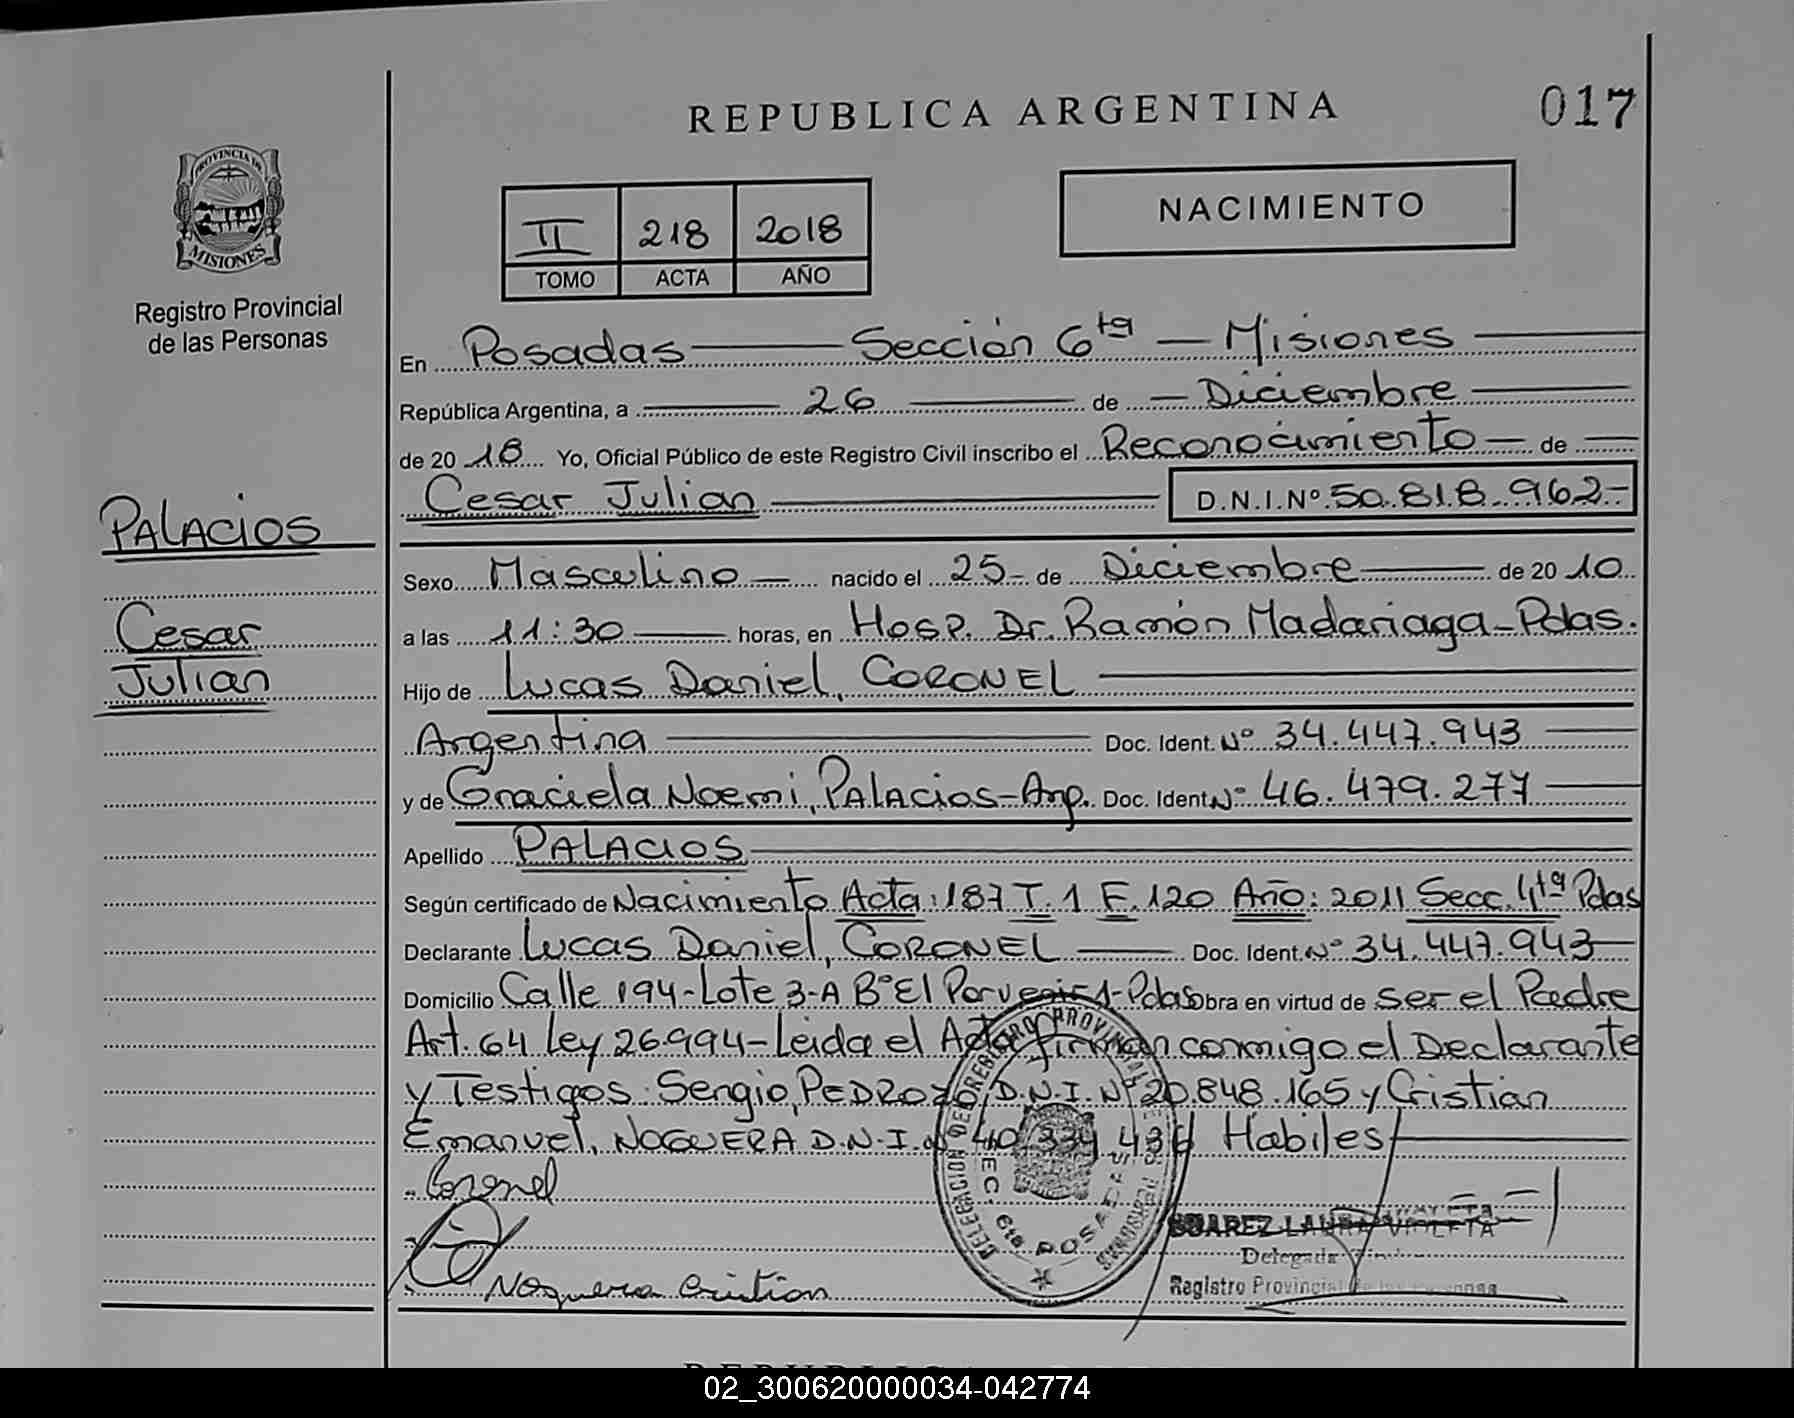 REPUBLICA ARGENTINA
017
PROVINCIA DE
MISIONES
Registro Provincial
de las Personas
II 218 2018
TOMO ACTA AÑO
NACIMIENTO
En Posadas — Sección 6ta — Misiones
República Argentina, a 26 de — Diciembre
de 2018 Yo, Oficial Público de este Registro Civil inscribo el Reconocimiento — de
Cesar Julian D.N.I.Nº 50.818.962-
PALACIOS
Cesar
Julian
Sexo Masculino — nacido el 25- de Diciembre de 2010
a las 11:30 horas, en Hosp. Dr. Ramón Madariaga-Pdas.
Hijo de Lucas Daniel, CORONEL
Argentina Doc. Ident. Nº 34.447.943
y de Graciela Noemi, PALACIOS-Arg. Doc. Ident Nº 46.479.277
Apellido PALACIOS
Según certificado de Nacimiento Acta: 187 T. 1 F. 120 Año: 2011 Secc. 4ta Pdas
Declarante Lucas Daniel, CORONEL Doc. Ident Nº 34.447.943
Domicilio Calle 194-Lote 3-A Bº El Porvenir 1-Pdas obra en virtud de ser el Padre
Art. 64 Ley 26.994-Leida el Acta firman conmigo el Declarante
y Testigos: Sergio, PEDROZO D.N.I. Nº 20.848.165 y Cristian
Emanuel, NOGUERA D.N.I. Habiles
Coronel
Noguera Cristian
DELEGACION DEL REGISTRO PROVINCIAL DE LAS PERSONAS
SEC. 6ta POSADAS
MISIONES
SUAREZ LAURA VIOLETA
Delegada
Registro Provincial de las Personas
02_300620000034-042774